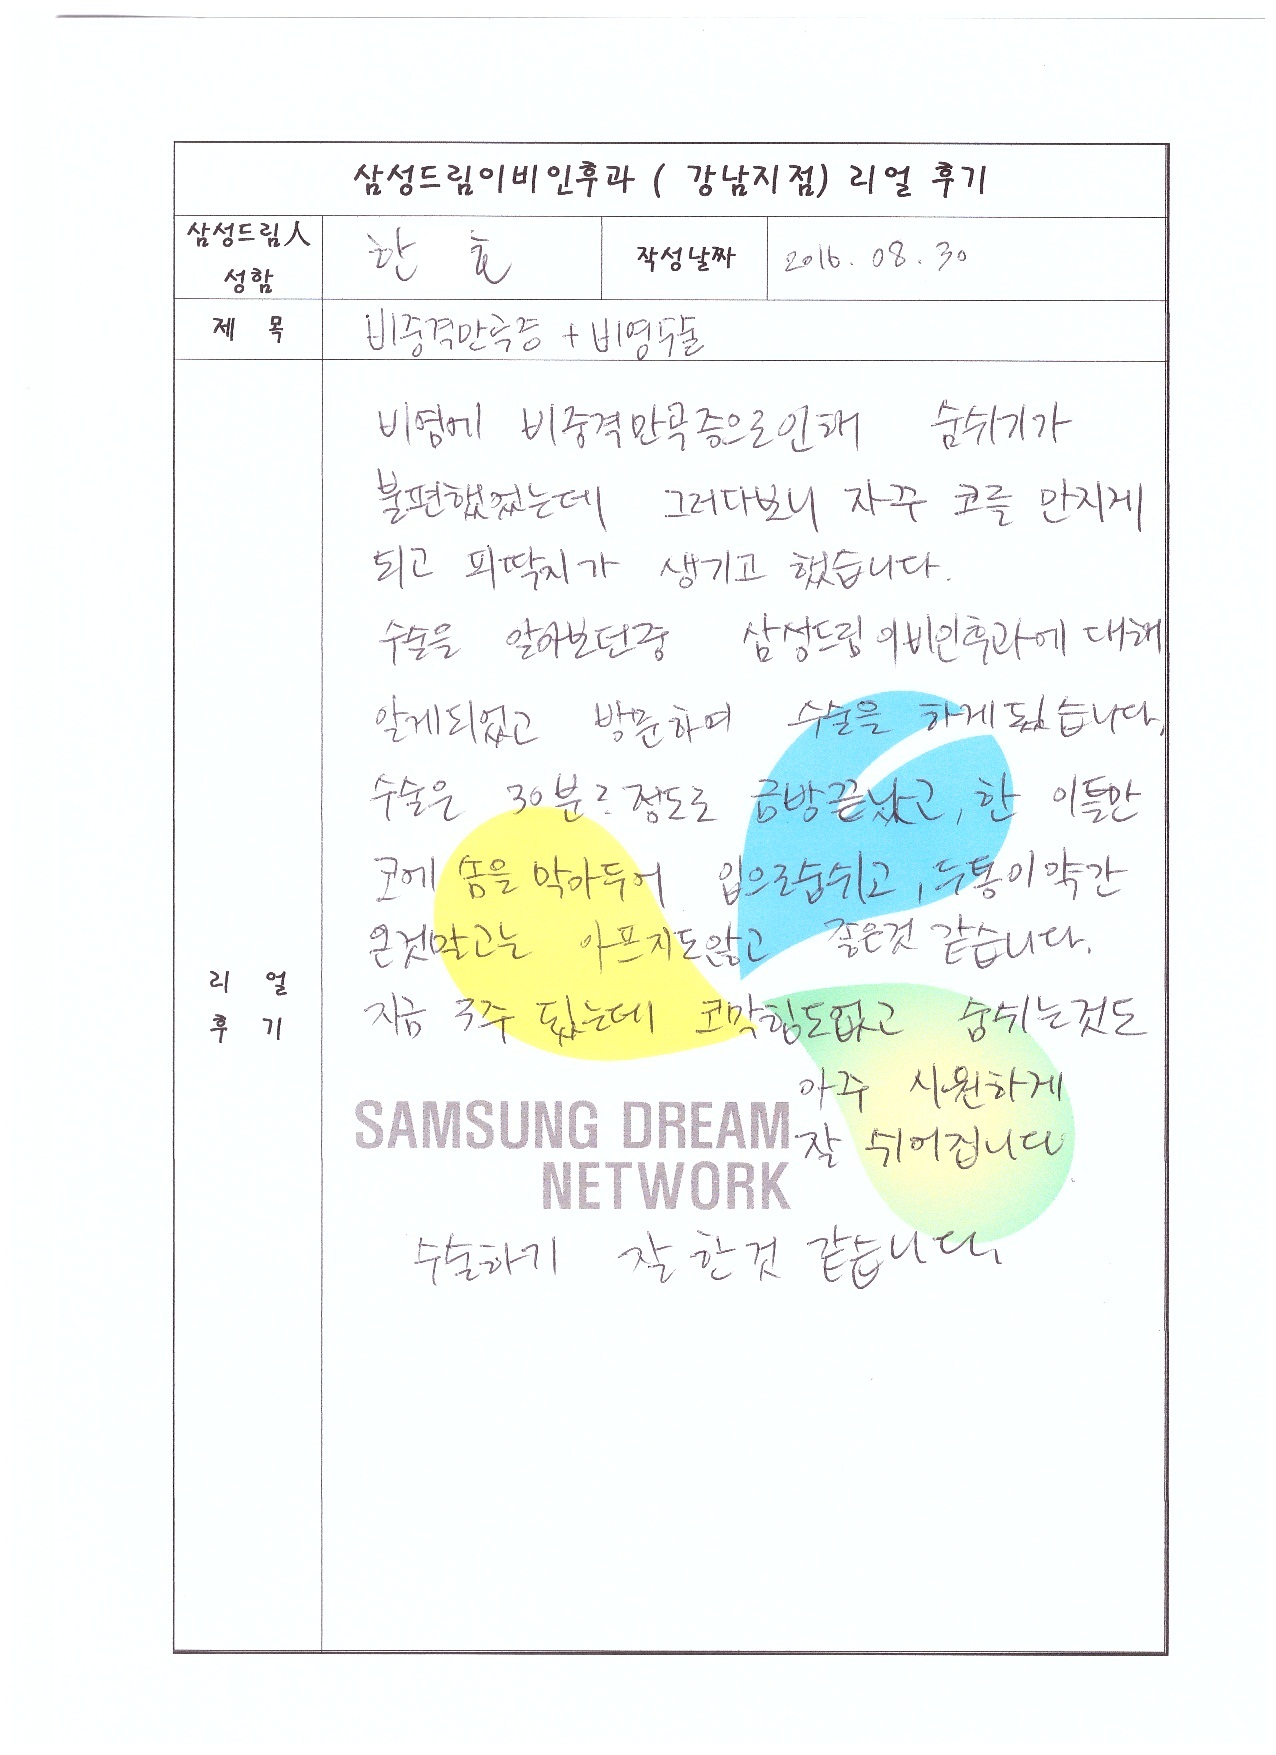 삼성드림이비인후과 ( 강남지점) 리얼 후기
삼성드림人
성함
한 호
작성날짜
2016. 08. 30
제 목
비중격만곡증 + 비염수술
비염에 비중격만곡증으로인해 숨쉬기가
불편했었는데 그러다보니 자꾸 코를 만지게
되고 피딱지가 생기고 했습니다.
수술을 알아보던중 삼성드림이비인후과에 대해
알게되었고 방문하며 수술을 하게됬습니다.
수술은 30분?정도로 금방끝났고, 한 이틀만
코에 솜을 막아두어 입으로숨쉬고, 두통이약간
온것말고는 아프지도않고 좋은것 같습니다.
지금 3주 됬는데 코막힘도없고 숨쉬는것도
아주 시원하게
잘 쉬어집니다
수술하기 잘 한것 같습니다.
리 얼
후 기
SAMSUNG DREAM
NETWORK